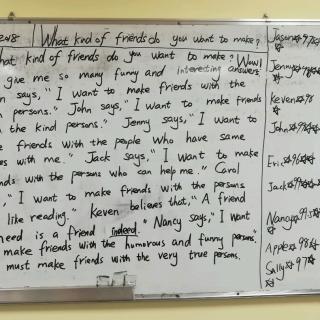 What kind of friends do you want to make?
hat kind of friends do you want to make? Wow!
give me so many funny and interesting answers.
n says, "I want to make friends with the
persons." John says, "I want to make friends
the kind persons." Jenny says, "I want to
e friends with the people who have same
es with me." Jack says, "I want to make
nds with the persons who can help me." Carol
"I want to make friends with the persons
like reading." Keven believes that, "A friend
need is a friend indeed." Nancy says, "I want
make friends with the humorous and funny persons."
must make friends with the very true persons.
Jason
Jenny
Keven 98
John
Eric
Jack
Nancy
Apple 98
Sally 97